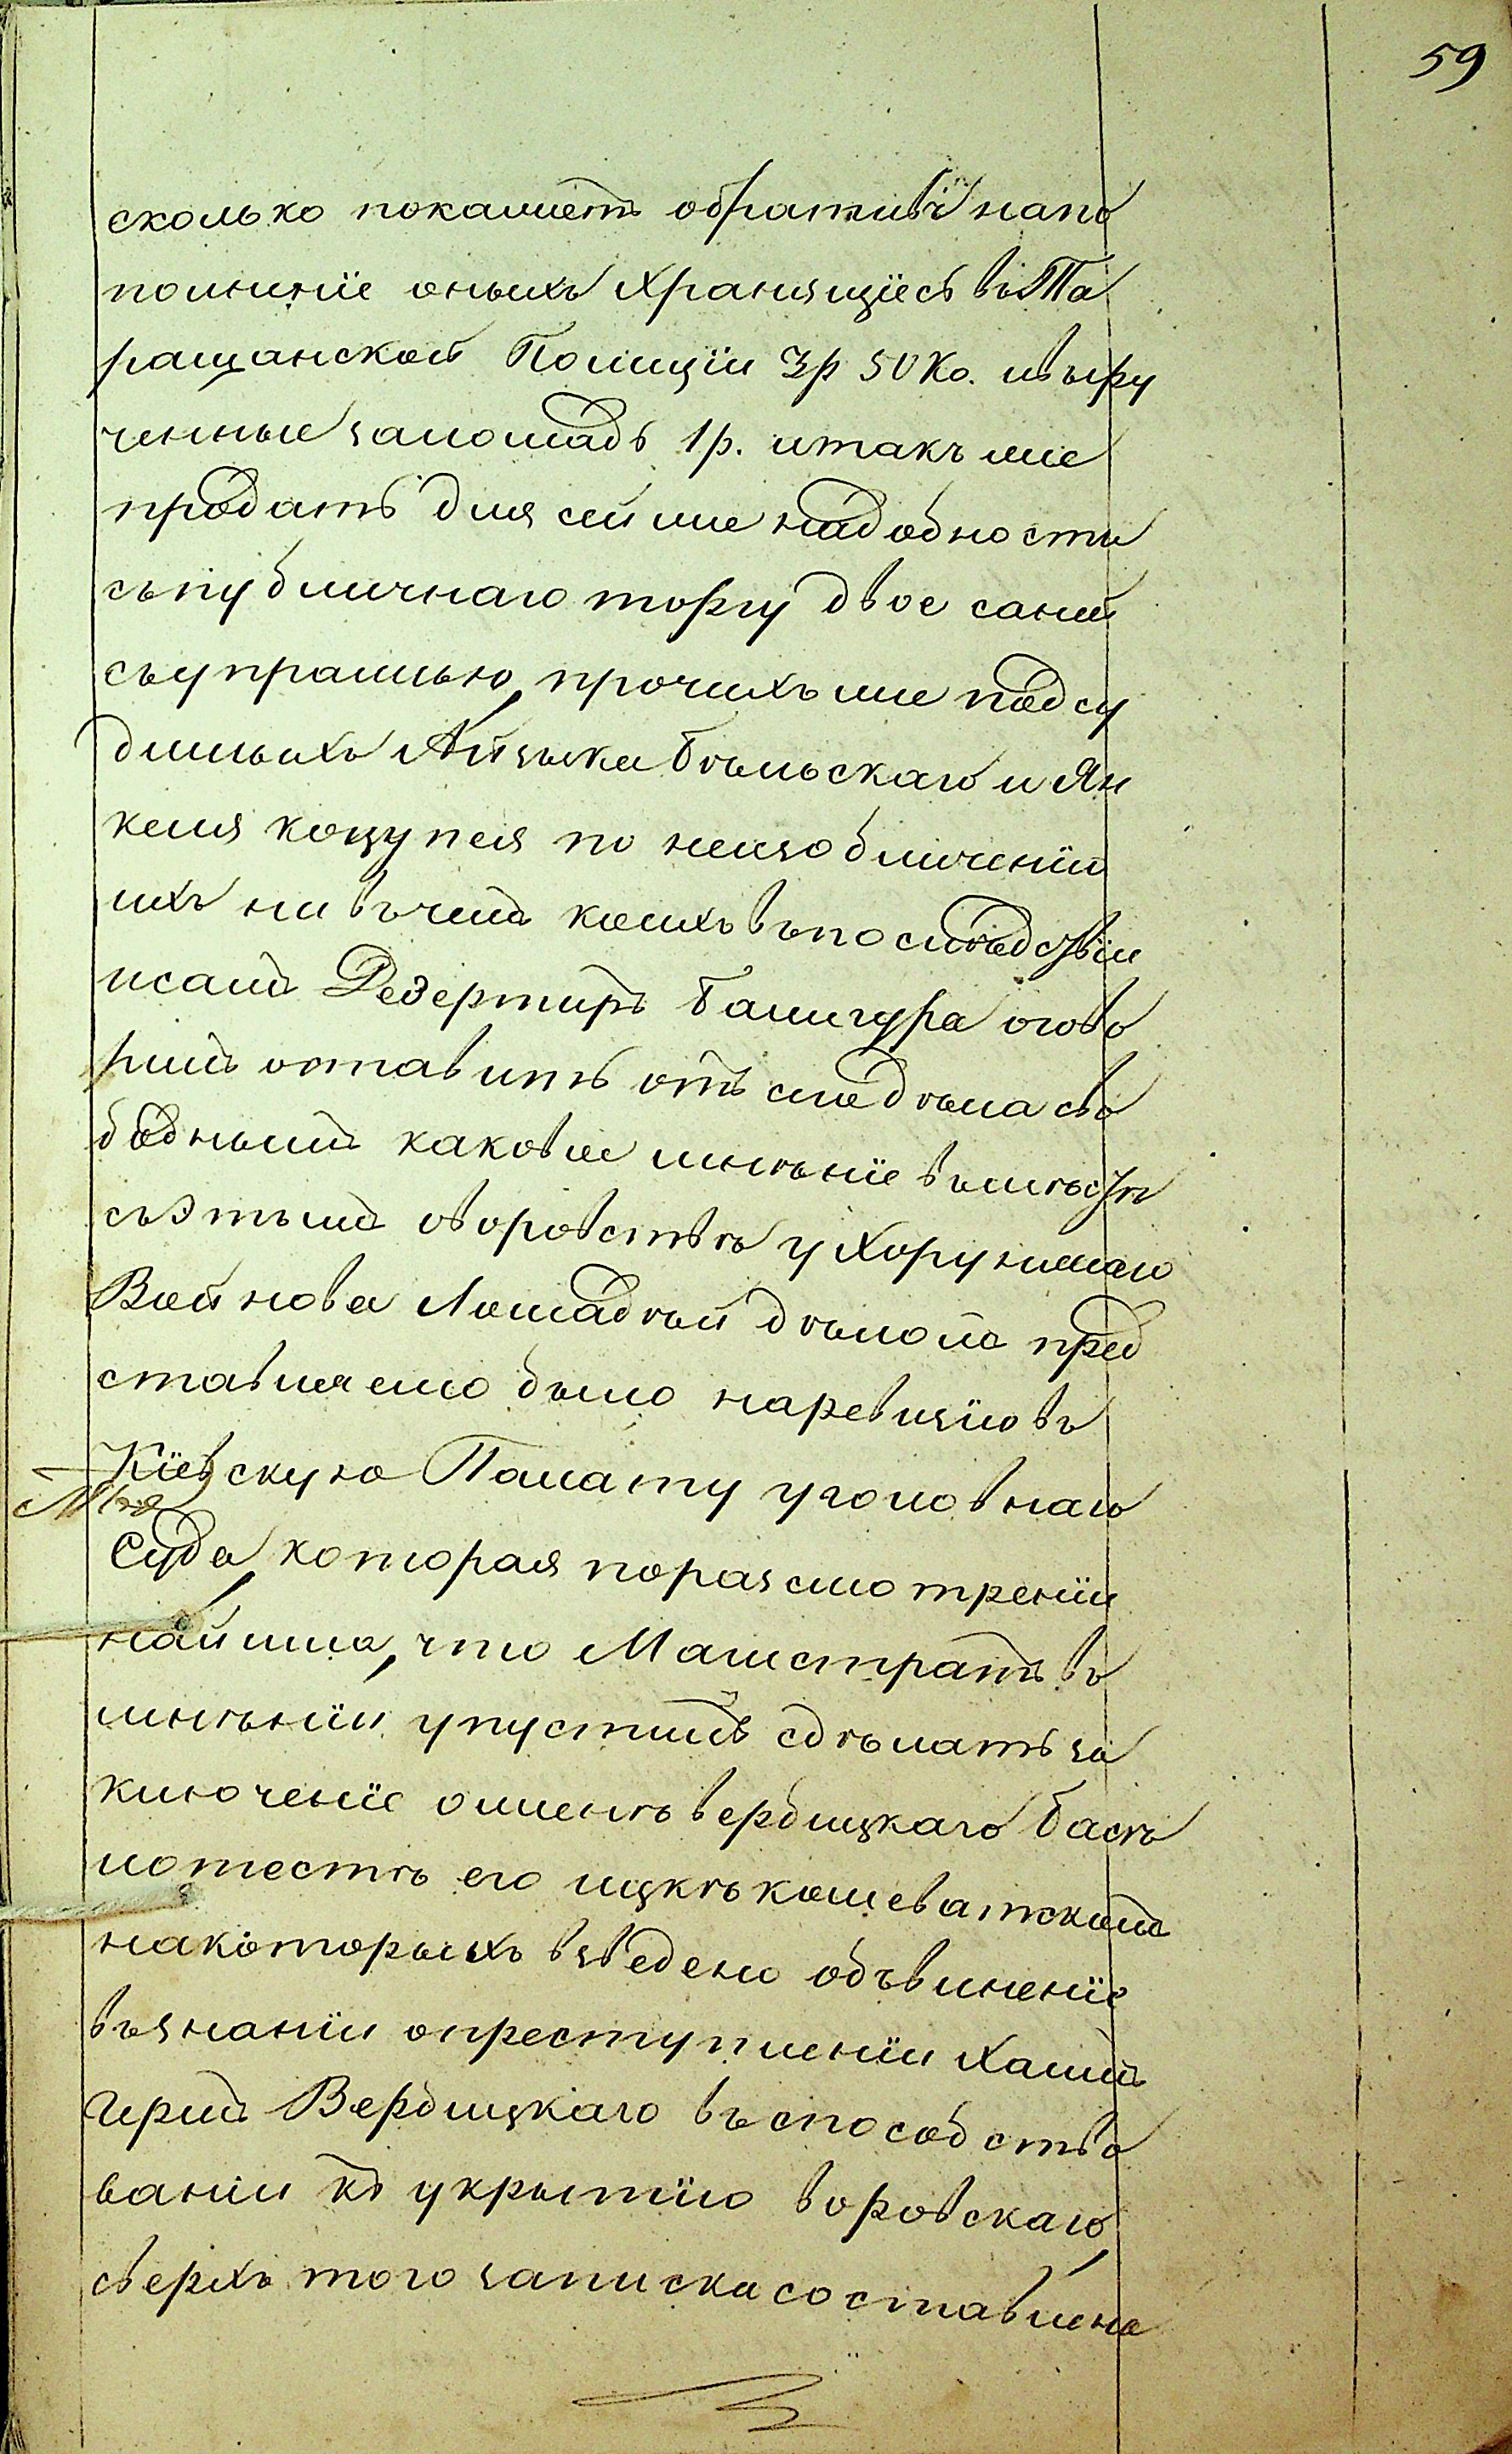 59
сколько покажетъ обративъ напо
полненіе оныхъ хранящіесь въ Та
ращанской Полиціи 3 р 50 ко. и выру
ченные за лошадь 1 р. итакъ же
продать для сей же надобности
съ публичнаго торгу двое саней
съ упряжью, прочихъ же подсу
димыхъ Айзыка Бѣльскаго и Ян
келя коцупея по неизобличеніи
ихъ ни въ чемъ коихъ въ послѣдствіи
и самъ Дезертиръ башгура огово
рилъ оставить отъ сего дѣла сво
бодными каковое мнѣніе вмѣстѣ
съ этымъ о воровствѣ у Хорунжаго
Войнова Лошадѣй дѣломъ пред
ставляемо было на ревизію въ
Кіевскую Палату уголовнаго
Суда, которая по разсмотреніи
найшла, что Магистратъ въ
мнѣніи упустилъ сдѣлать за
ключеніе о женѣ вербицкаго басѣ
и о тестѣ его ицкѣ кошеватскомъ
на которыхъ взведено объвиненіе
въ знаніи о преступленіи Хаимъ
Герша Вербицкаго въ способство
ваніи къ укрытію воровскаго,
сверхъ того записка составлена